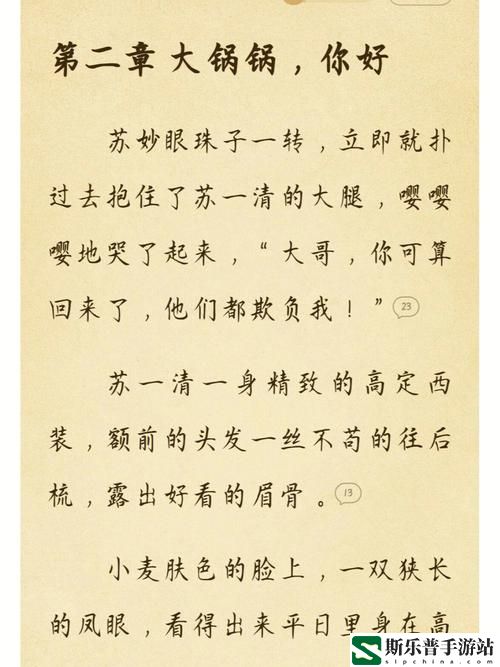 第二章 大锅锅，你好
苏妙眼珠子一转，立即就扑
过去抱住了苏一清的大腿，嘤嘤
嘤地哭了起来，“大哥，你可算
回来了，他们都欺负我！” 23
苏一清一身精致的高定西
装，额前的头发一丝不苟的往后
梳，露出好看的眉骨。 13
小麦肤色的脸上，一双狭长
的凤眼，看得出来平日里身在高
斯乐普手游站
slpchina.com